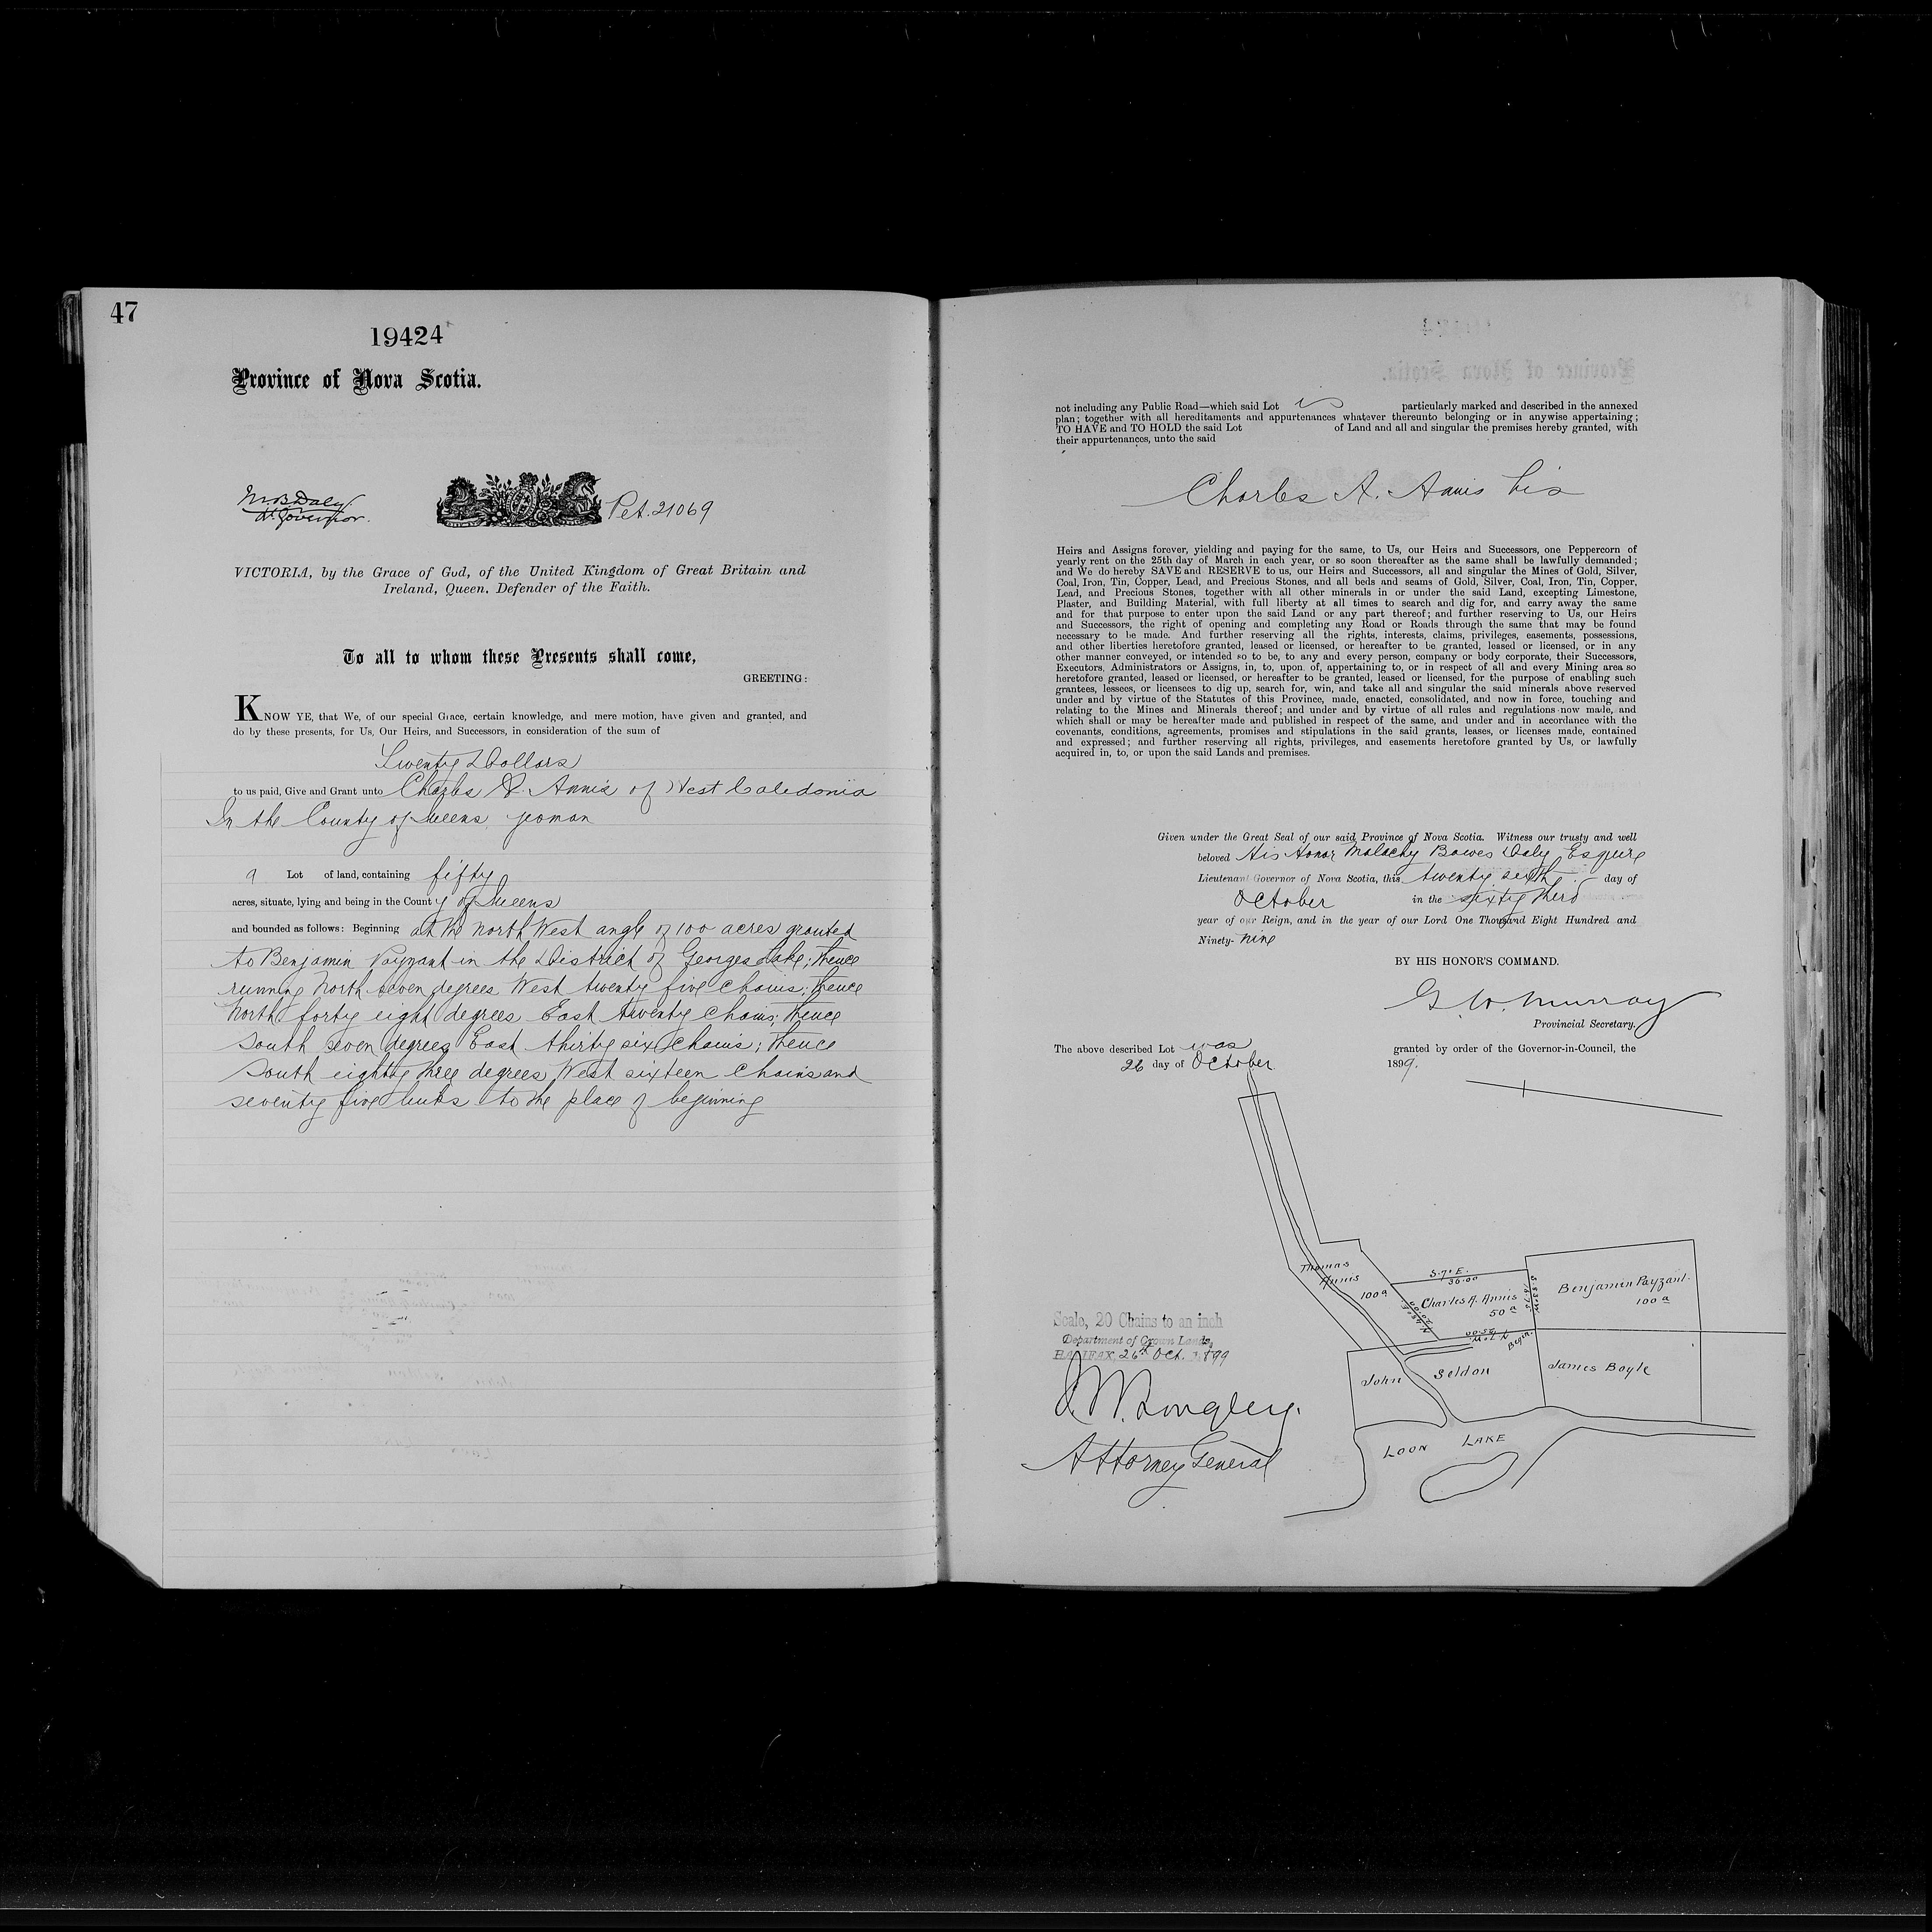 47
19424
Province of Nova Scotia.
M B Daly
Lt Governor.
Pet. 21069
VICTORIA, by the Grace of God, of the United Kingdom of Great Britain and
Ireland, Queen, Defender of the Faith.
To all to whom these Presents shall come,
GREETING:
KNOW YE, that We, of our special Grace, certain knowledge, and mere motion, have given and granted, and
do by these presents, for Us, Our Heirs, and Successors, in consideration of the sum of
Twenty Dollars
to us paid, Give and Grant unto Charles A. Annis of West Caledonia
In the County of Queens yeoman
a Lot of land, containing fifty
acres, situate, lying and being in the County of Queens
and bounded as follows: Beginning at the North West angle of 100 acres granted
to Benjamin Payzant in the District of Georges Lake; thence
running North seven degrees West twenty five chains; thence
North forty eight degrees East twenty chains; thence
South seven degrees East thirty six chains; thence
South eighty three degrees West sixteen chains and
seventy five links to the place of beginning
not including any Public Road—which said Lot is particularly marked and described in the annexed
plan; together with all hereditaments and appurtenances whatever thereunto belonging or in anywise appertaining;
TO HAVE and TO HOLD the said Lot of Land and all and singular the premises hereby granted, with
their appurtenances, unto the said
Charles A. Annis his
Heirs and Assigns forever, yielding and paying for the same, to Us, our Heirs and Successors, one Peppercorn of
yearly rent on the 25th day of March in each year, or so soon thereafter as the same shall be lawfully demanded;
and We do hereby SAVE and RESERVE to us, our Heirs and Successors, all and singular the Mines of Gold, Silver,
Coal, Iron, Tin, Copper, Lead, and Precious Stones, and all beds and seams of Gold, Silver, Coal, Iron, Tin, Copper,
Lead, and Precious Stones, together with all other minerals in or under the said Land, excepting Limestone,
Plaster, and Building Material, with full liberty at all times to search and dig for, and carry away the same
and for that purpose to enter upon the said Land or any part thereof; and further reserving to Us, our Heirs
and Successors, the right of opening and completing any Road or Roads through the same that may be found
necessary to be made. And further reserving all the rights, interests, claims, privileges, easements, possessions,
and other liberties heretofore granted, leased or licensed, or hereafter to be granted, leased or licensed, or in any
other manner conveyed, or intended so to be, to any and every person, company or body corporate, their Successors,
Executors, Administrators or Assigns, in, to, upon, of, appertaining to, or in respect of all and every Mining area so
heretofore granted, leased or licensed, or hereafter to be granted, leased or licensed, for the purpose of enabling such
grantees, lessees, or licensees to dig up, search for, win, and take all and singular the said minerals above reserved
under and by virtue of the Statutes of this Province, made, enacted, consolidated, and now in force, touching and
relating to the Mines and Minerals thereof; and under and by virtue of all rules and regulations now made, and
which shall or may be hereafter made and published in respect of the same, and under and in accordance with the
covenants, conditions, agreements, promises and stipulations in the said grants, leases, or licenses made, contained
and expressed; and further reserving all rights, privileges, and easements heretofore granted by Us, or lawfully
acquired in, to, or upon the said Lands and premises.
Given under the Great Seal of our said Province of Nova Scotia. Witness our trusty and well
beloved His Honor Malachy Bowes Daly Esquire
Lieutenant Governor of Nova Scotia, this twenty sixth day of
October in the sixty third
year of our Reign, and in the year of our Lord One Thousand Eight Hundred and
Ninety-nine
BY HIS HONOR'S COMMAND.
G. H. Murray
Provincial Secretary.
The above described Lot was granted by order of the Governor-in-Council, the
26 day of October 1899.
Thomas
Annis
100 a
S. 7° E.
36.00
Charles A. Annis
50 a
N 48° E
20.00
S 83° W
16.75
N 7° W.
25.00
Begin.
Benjamin Payzant.
100 a
John Seldon
James Boyle
LOON LAKE
Scale, 20 Chains to an inch
Department of Crown Lands,
HALIFAX, 26th Oct. 1899
J. W. Longley.
Attorney General